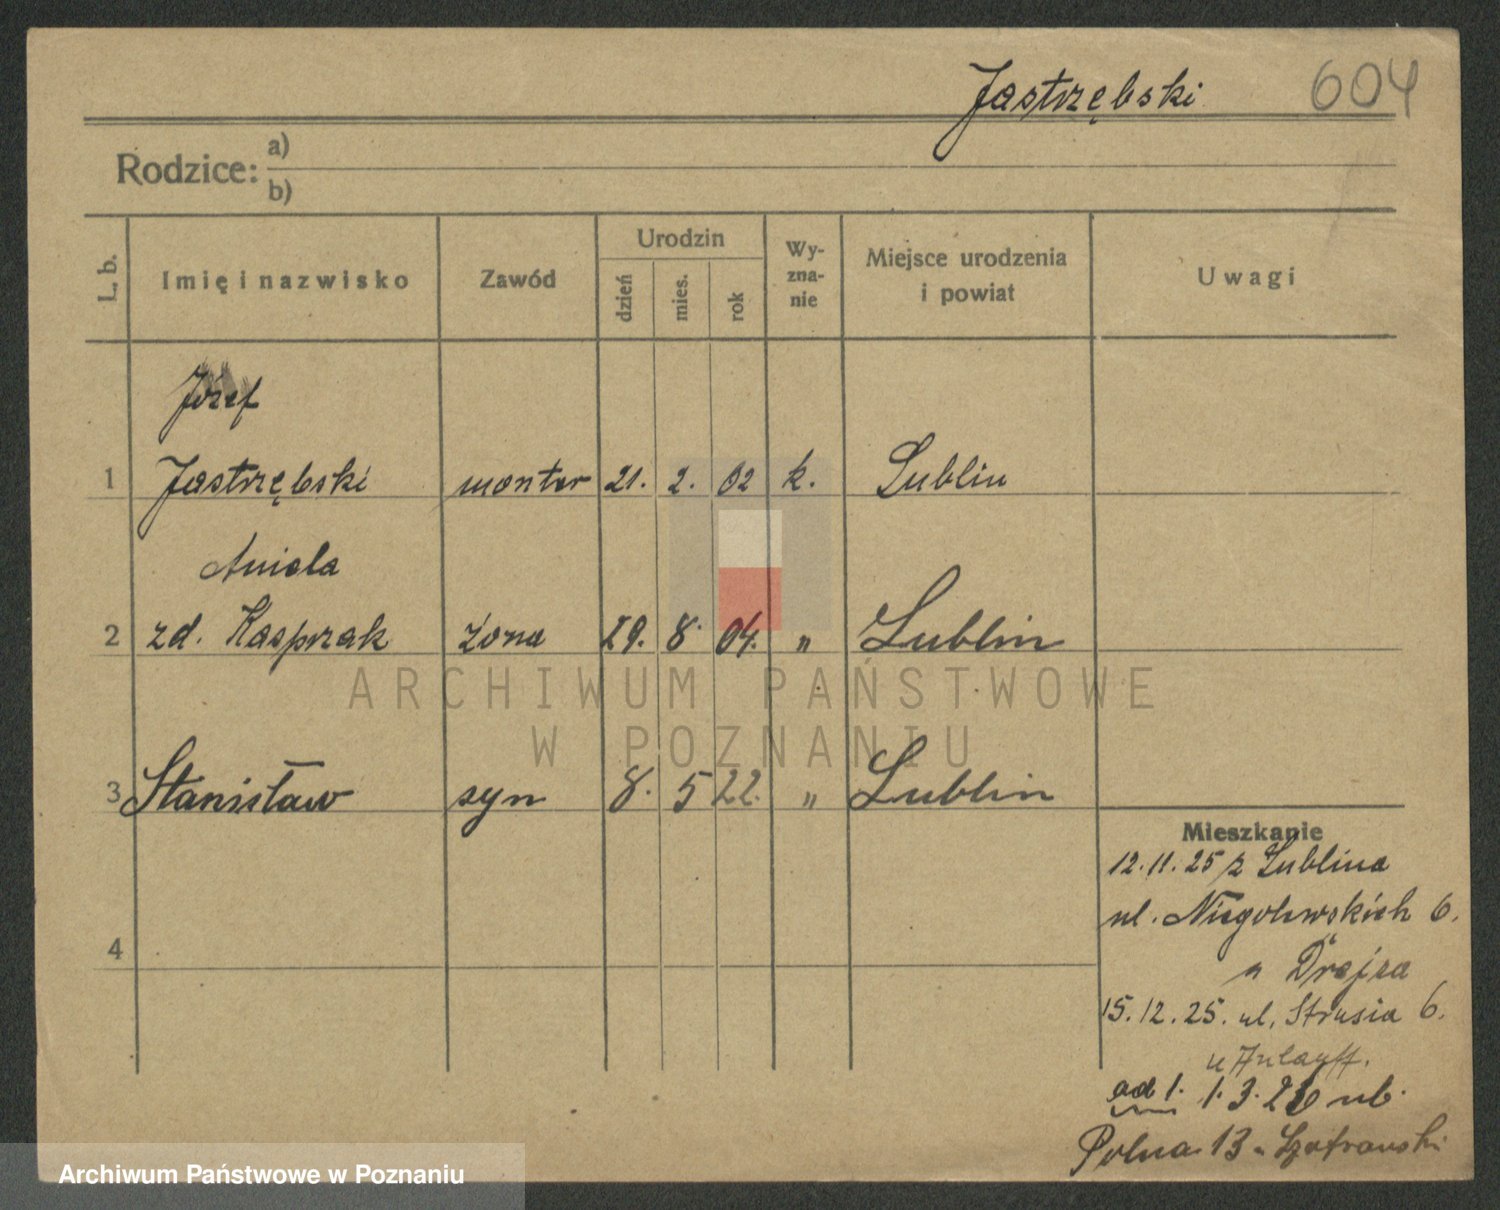 Jastrzębski 604
Rodzice: a)
b)
L. b. Imię i nazwisko Zawód Urodzin dzień mies. rok Wy-
zna-
nie Miejsce urodzenia
i powiat Uwagi
Józef
1 Jastrzębski monter 21. 2. 02 k. Lublin
Aniela
2 zd. Kasprzak żona 29. 8. 04. " Lublin
3 Stanisław syn 8. 5 22. " Lublin
4
Mieszkanie
12.11.25 z Lublina
ul. Niegolewskich 6.
u Drajza
15.12.25. ul. Strusia 6.
u
od 1. 1.3.26 ul.
Polna 13 Szafranski
ARCHIWUM PAŃSTWOWE
W POZNANIU
Archiwum Państwowe w Poznaniu